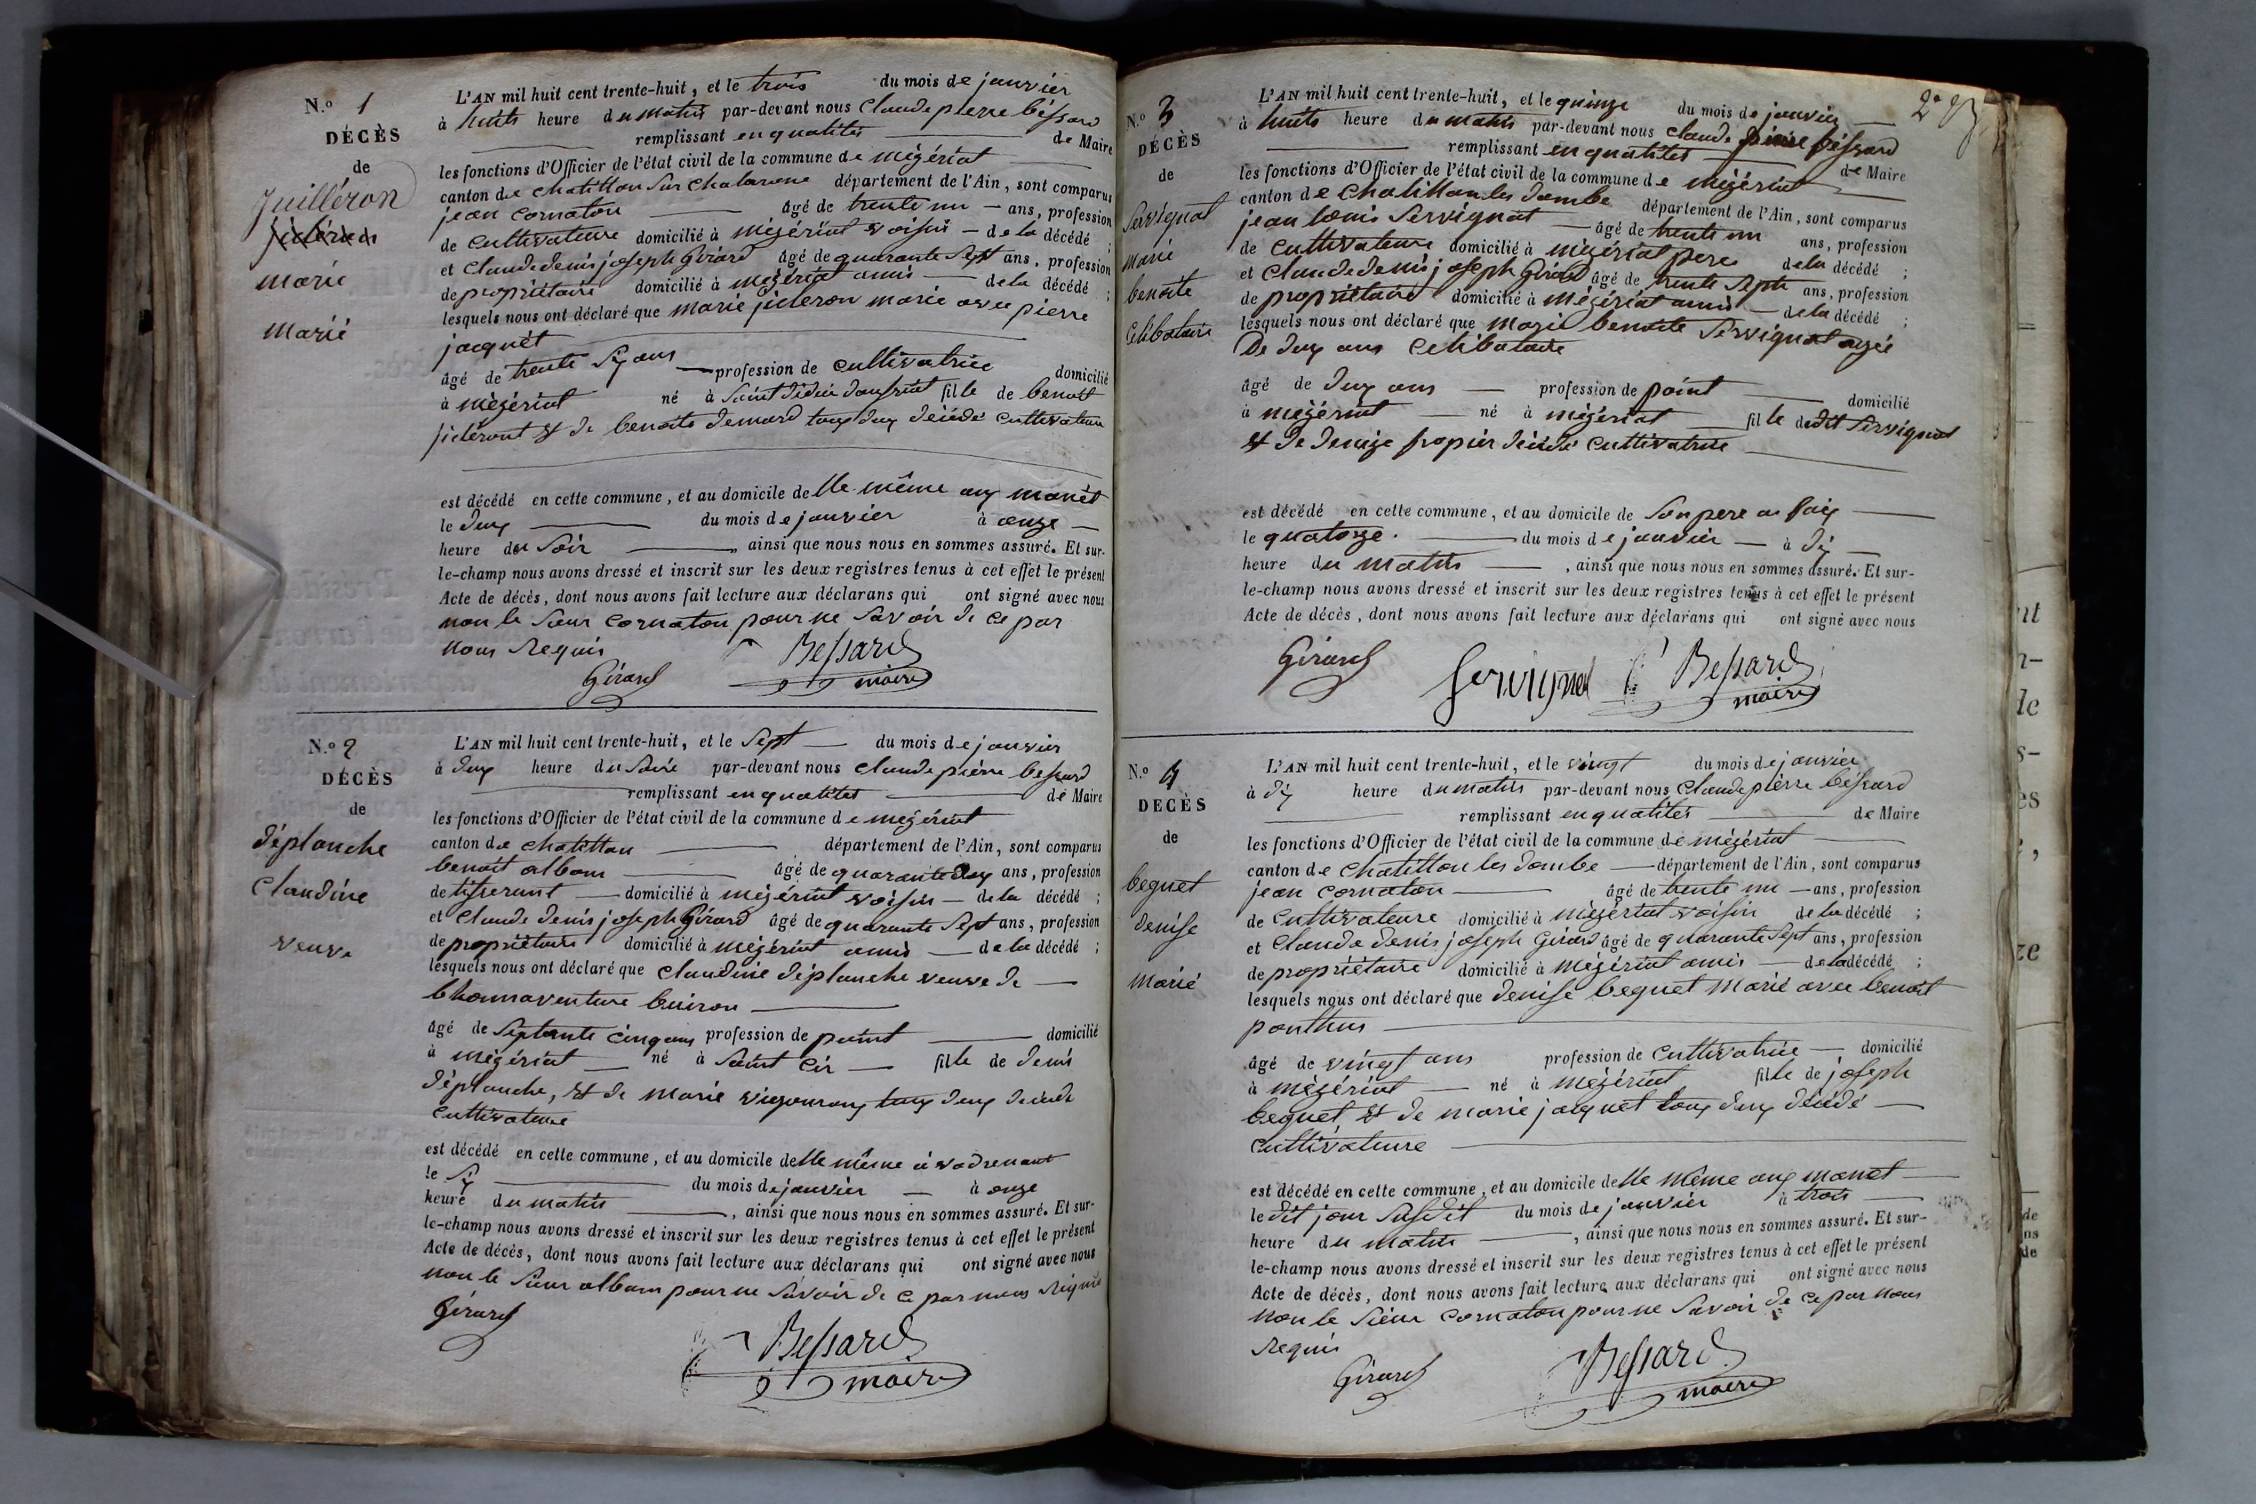 N.o 1
DÉCÈS
de
Juilléron
marie
marié
L'AN mil huit cent trente-huit, et le trois du mois de janvier
à huits heure du matin par-devant nous Claude pierre béssard
remplissant en qualités de Maire
les fonctions d'Officier de l'état civil de la commune de mégériat
canton de chatillon sur chalaronne département de l'Ain, sont comparus
jean cornaton âgé de trente un ans, profession
de cultivateure domicilié à mégériat voisin de la décédé ;
et Claude denis joseph Girard âgé de quarante sept ans, profession
de propriétaire domicilié à mégériat amis de la décédé ;
lesquels nous ont déclaré que marie jicleron marié avec pierre
jacquét
âgé de trente six ans profession de cultivatrice domicilié
à mégériat né à Saint didié daussiat fille de benoit
jicleront et de benoite demard tous deux décédé cultivateure
est décédé en cette commune, et au domicile de lle même aux manét
le deux du mois de janvier à onze
heure du soir , ainsi que nous nous en sommes assuré. Et sur-
le-champ nous avons dressé et inscrit sur les deux registres tenus à cet effet le présent
Acte de décès, dont nous avons fait lecture aux déclarans qui ont signé avec nous
non le sieur cornaton pour ne savoir de ce par
nous requis
Girard Bessard
maire
N.o 2
DÉCÈS
de
déplanche
claudine
veuve
L'AN mil huit cent trente-huit, et le sept du mois de janvier
à deux heure du soire par-devant nous claude pierre bessard
remplissant en qualités de Maire
les fonctions d'Officier de l'état civil de la commune de mégériat
canton de chatillon département de l'Ain, sont comparus
benoit alban âgé de quarante deux ans, profession
de tisserant domicilié à mégériat voisin de la décédé ;
et claude denis joseph Girard âgé de quarante sept ans, profession
de propriétaire domicilié à mégériat amis de la décédé ;
lesquels nous ont déclaré que claudine déplanche veuve de
bhonnaventure buiron
âgé de septante cinq ans profession de point domicilié
à mégériat né à saint cir fille de denis
déplanche, et de marie vigouroux tous deux décédé
cultivateure
est décédé en cette commune, et au domicile de lle même à vadrenant
le six du mois de janvier à onze
heure du matin , ainsi que nous nous en sommes assuré. Et sur-
le-champ nous avons dressé et inscrit sur les deux registres tenus à cet effet le présent
Acte de décès, dont nous avons fait lecture aux déclarans qui ont signé avec nous
non le sieur alban pour ne savoir de ce par nous requis
Girard
Bessard
maire
2e
N.o 3
DÉCÈS
de
Servignat
marie
benoite
Célibataire
L'AN mil huit cent trente-huit, et le quinze du mois de janvier
à huits heure du matin par-devant nous claude pierre béssard
remplissant en qualités de Maire
les fonctions d'Officier de l'état civil de la commune de mégériat
canton de chatillon les dombe département de l'Ain, sont comparus
jean louis servignat âgé de trente un ans, profession
de cultivateure domicilié à mégériat pere de la décédé ;
et claude denis joseph Girard âgé de trente sept ans, profession
de propriétaire domicilié à mégériat amis de la décédé ;
lesquels nous ont déclaré que marie benoite servignat agée
De deux ans célibataire
âgé de deux ans profession de point domicilié
à mégériat né à mégériat fille du dit servignat
et de denize fropier décédé cultivatrice
est décédé en cette commune, et au domicile de son pere au faix
le quatorze. du mois de janvier à dix
heure du matin , ainsi que nous nous en sommes assuré. Et sur-
le-champ nous avons dressé et inscrit sur les deux registres tenus à cet effet le présent
Acte de décès, dont nous avons fait lecture aux déclarans qui ont signé avec nous
Girard Servignat Bessard
maire
N.o 4
DÉCÈS
de
bequet
denise
marié
L'AN mil huit cent trente-huit, et le vingt du mois de janvier
à dix heure du matin par-devant nous Claude pierre béssard
remplissant en qualités de Maire
les fonctions d'Officier de l'état civil de la commune de mégériat
canton de chatillon les dombe département de l'Ain, sont comparus
jean cornaton âgé de trente un ans, profession
de cultivateure domicilié à mégériat voisin de la décédé ;
et claude denis joseph Girard âgé de quarante sept ans, profession
de propriétaire domicilié à mégériat amis de la décédé ;
lesquels nous ont déclaré que denise bequet marié avec benoit
ponthus
âgé de vingt ans profession de cultivatrice domicilié
à mégériat né à mégériat fille de joseph
bequet, et de marie jacquet tous deux décédé
cultivateure
est décédé en cette commune, et au domicile de lle même aux manét
le dit jour susdit du mois de janvier à trois
heure du matin , ainsi que nous nous en sommes assuré. Et sur-
le-champ nous avons dressé et inscrit sur les deux registres tenus à cet effet le présent
Acte de décès, dont nous avons fait lecture aux déclarans qui ont signé avec nous
non le sieur cornaton pour ne savoir de ce par nous
requis
Girard Bessard
maire